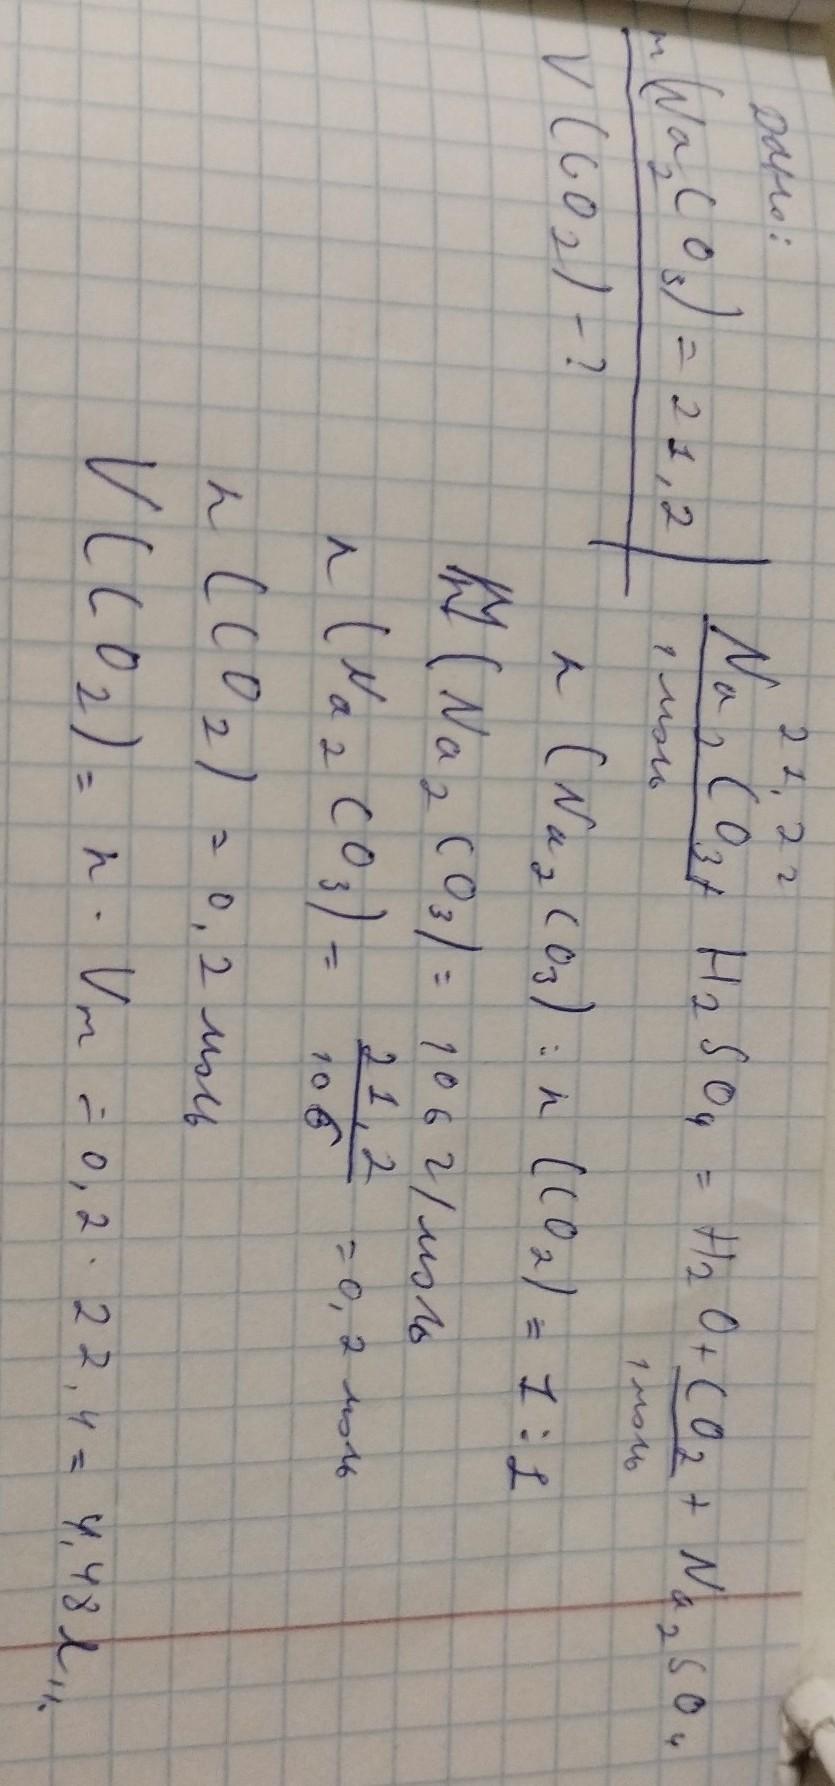 Дано:
m(Na2CO3) = 21,2
V(CO2) - ?
21,2г
Na2CO3 + H2SO4 = H2O + CO2 + Na2SO4
1 моль 1 моль
n(Na2CO3) : n(CO2) = 1 : 1
M(Na2CO3) = 106 г/моль
n(Na2CO3) = 21,2/106 = 0,2 моль
n(CO2) = 0,2 моль
V(CO2) = n · Vm = 0,2 · 22,4 = 4,48 л